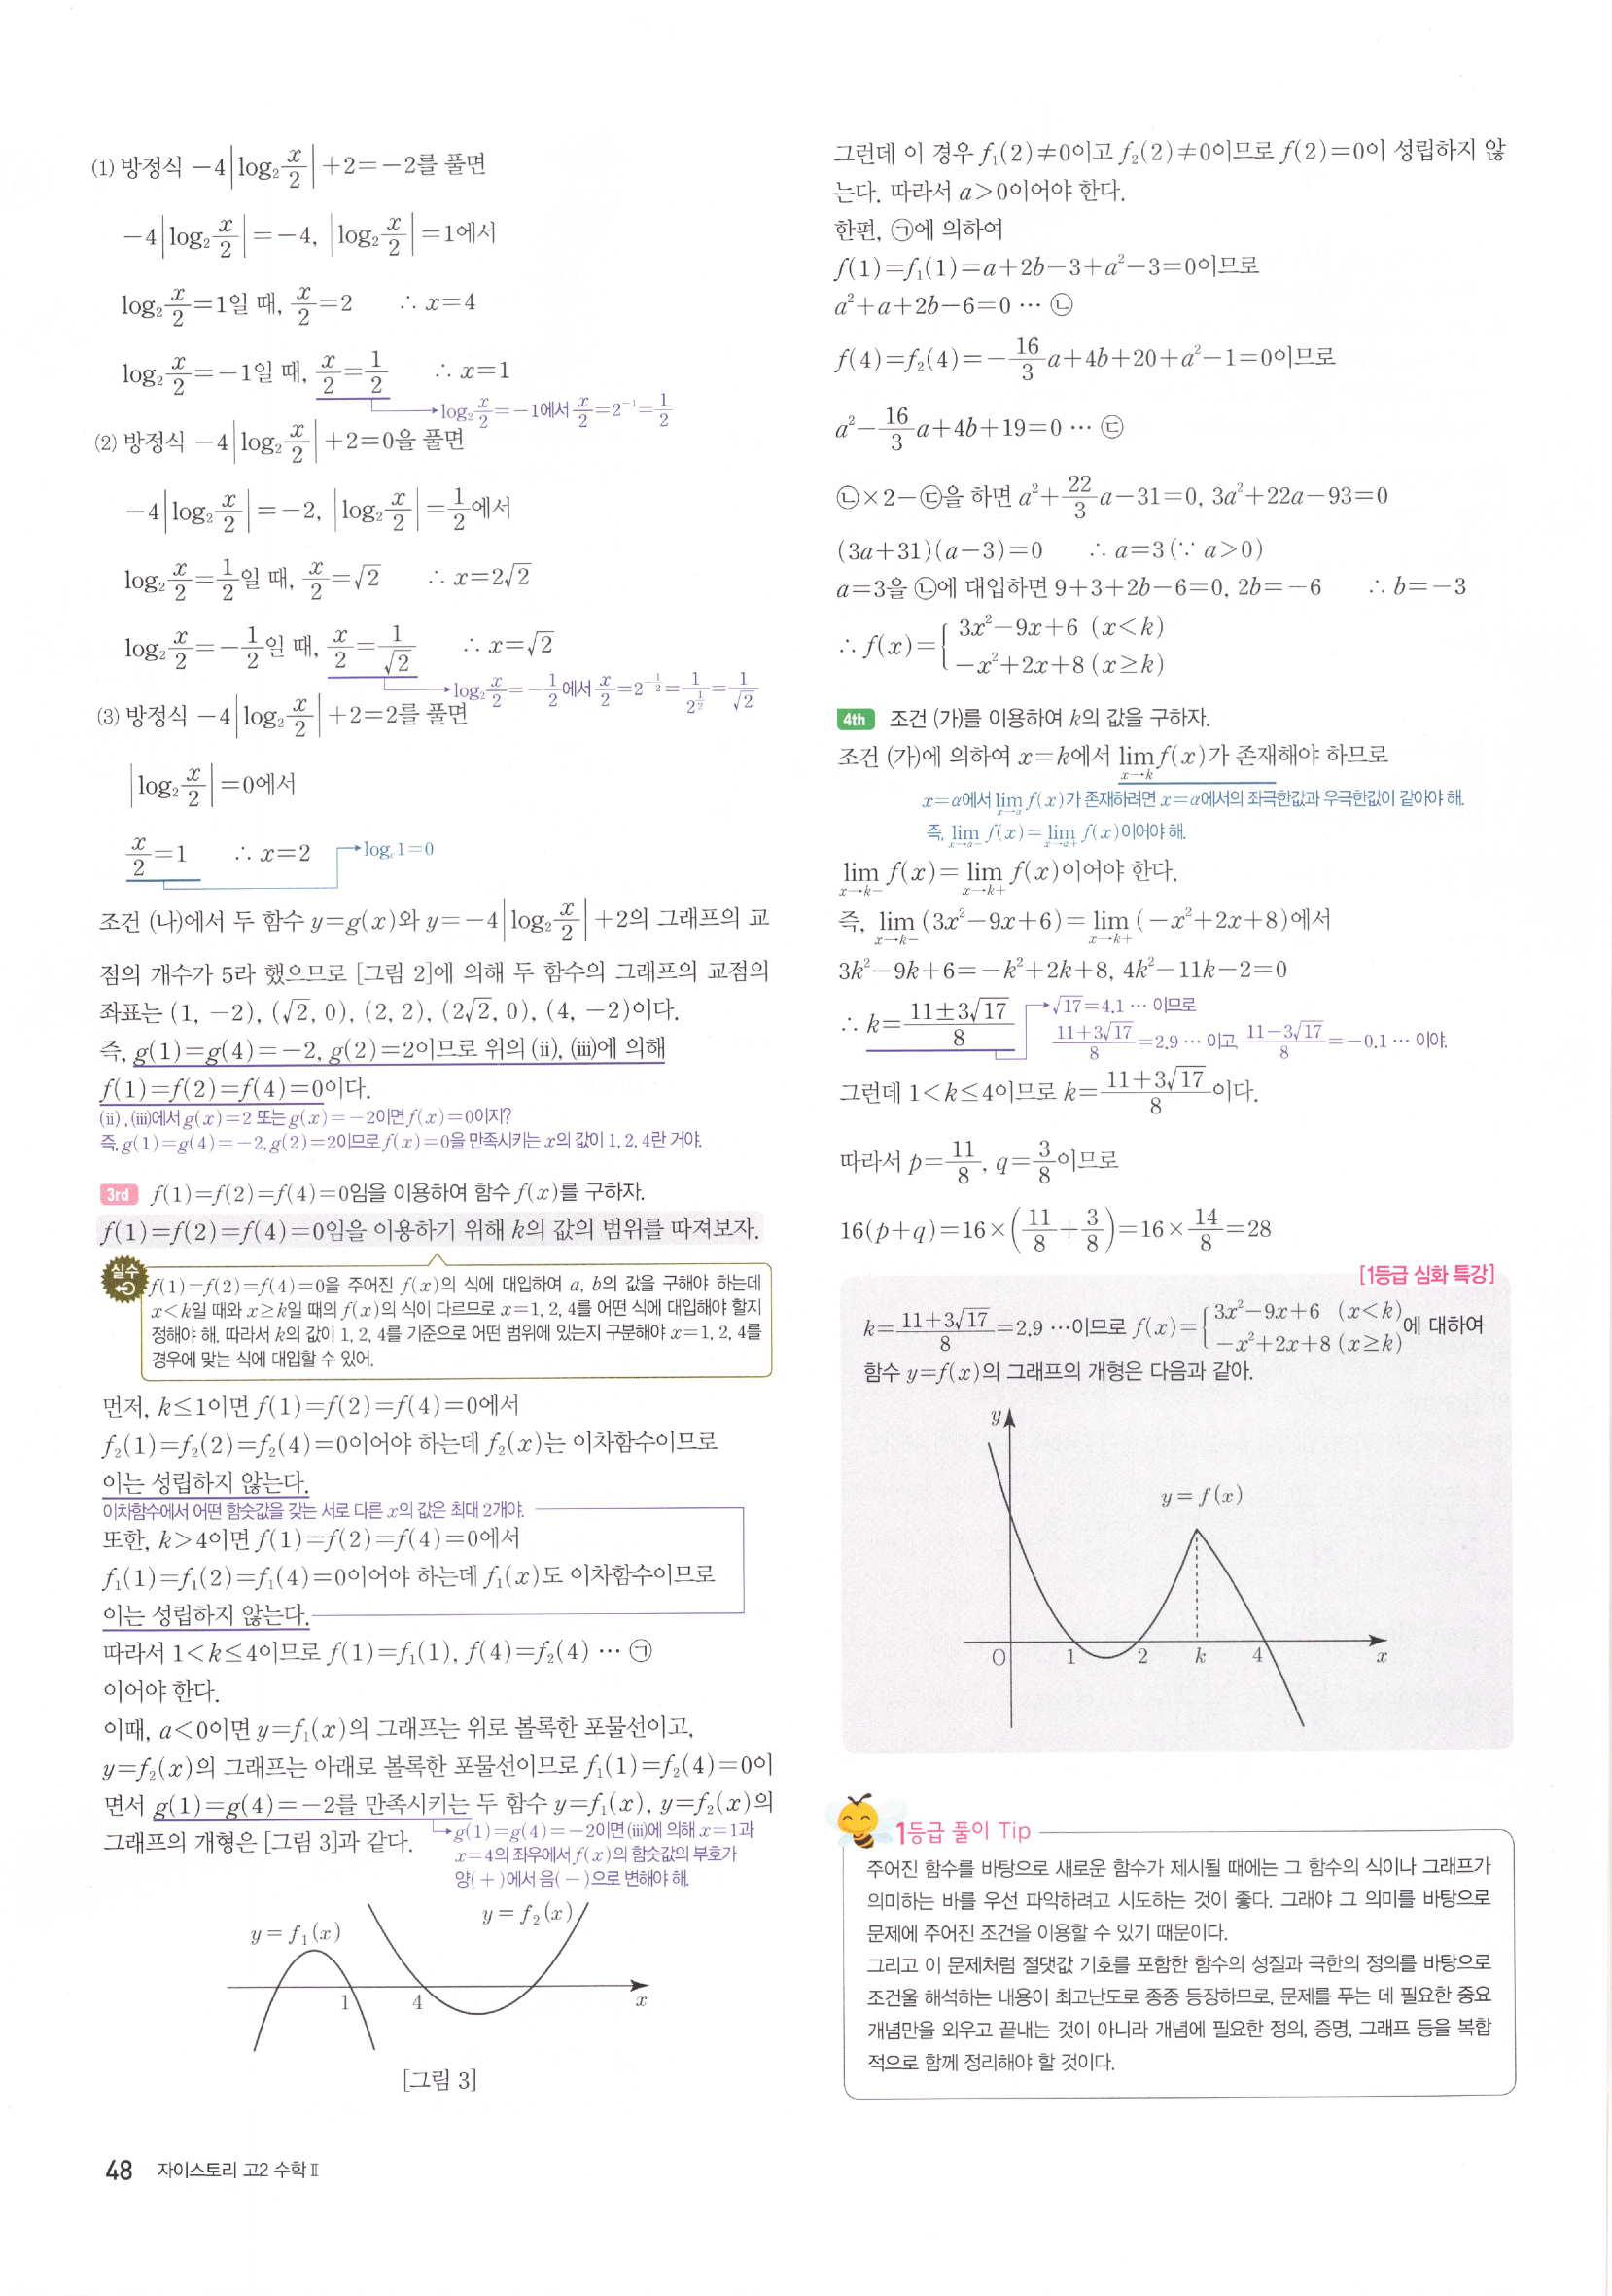 (1) 방정식 −4|log₂ x/2|+2=−2를 풀면
−4|log₂ x/2|=−4, |log₂ x/2|=1에서
log₂ x/2=1일 때, x/2=2 ∴ x=4
log₂ x/2=−1일 때, x/2=1/2 ∴ x=1
log₂ x/2=−1에서 x/2=2⁻¹=1/2
(2) 방정식 −4|log₂ x/2|+2=0을 풀면
−4|log₂ x/2|=−2, |log₂ x/2|=1/2에서
log₂ x/2=1/2일 때, x/2=√2 ∴ x=2√2
log₂ x/2=−1/2일 때, x/2=1/√2 ∴ x=√2
log₂ x/2=−1/2에서 x/2=2^(−1/2)=1/2^(1/2)=1/√2
(3) 방정식 −4|log₂ x/2|+2=2를 풀면
|log₂ x/2|=0에서
x/2=1 ∴ x=2 log_c 1=0
조건 (나)에서 두 함수 y=g(x)와 y=−4|log₂ x/2|+2의 그래프의 교
점의 개수가 5라 했으므로 [그림 2]에 의해 두 함수의 그래프의 교점의
좌표는 (1, −2), (√2, 0), (2, 2), (2√2, 0), (4, −2)이다.
즉, g(1)=g(4)=−2, g(2)=2이므로 위의 (ii), (iii)에 의해
f(1)=f(2)=f(4)=0이다.
(ii), (iii)에서 g(x)=2 또는 g(x)=−2이면 f(x)=0이지?
즉, g(1)=g(4)=−2, g(2)=2이므로 f(x)=0을 만족시키는 x의 값이 1, 2, 4란 거야.
3rd f(1)=f(2)=f(4)=0임을 이용하여 함수 f(x)를 구하자.
f(1)=f(2)=f(4)=0임을 이용하기 위해 k의 값의 범위를 따져보자.
실수
f(1)=f(2)=f(4)=0을 주어진 f(x)의 식에 대입하여 a, b의 값을 구해야 하는데
x<k일 때와 x≥k일 때의 f(x)의 식이 다르므로 x=1, 2, 4를 어떤 식에 대입해야 할지
정해야 해. 따라서 k의 값이 1, 2, 4를 기준으로 어떤 범위에 있는지 구분해야 x=1, 2, 4를
경우에 맞는 식에 대입할 수 있어.
먼저, k≤1이면 f(1)=f(2)=f(4)=0에서
f₂(1)=f₂(2)=f₂(4)=0이어야 하는데 f₂(x)는 이차함수이므로
이는 성립하지 않는다.
이차함수에서 어떤 함숫값을 갖는 서로 다른 x의 값은 최대 2개야.
또한, k>4이면 f(1)=f(2)=f(4)=0에서
f₁(1)=f₁(2)=f₁(4)=0이어야 하는데 f₁(x)도 이차함수이므로
이는 성립하지 않는다.
따라서 1<k≤4이므로 f(1)=f₁(1), f(4)=f₂(4) ⋯ ㉠
이어야 한다.
이때, a<0이면 y=f₁(x)의 그래프는 위로 볼록한 포물선이고,
y=f₂(x)의 그래프는 아래로 볼록한 포물선이므로 f₁(1)=f₂(4)=0이
면서 g(1)=g(4)=−2를 만족시키는 두 함수 y=f₁(x), y=f₂(x)의
그래프의 개형은 [그림 3]과 같다.
g(1)=g(4)=−2이면 (iii)에 의해 x=1과
x=4의 좌우에서 f(x)의 함숫값의 부호가
양(+)에서 음(−)으로 변해야 해.
y=f₁(x)
y=f₂(x)
1 4 x
[그림 3]
48 자이스토리 고2 수학Ⅱ
그런데 이 경우 f₁(2)≠0이고 f₂(2)≠0이므로 f(2)=0이 성립하지 않
는다. 따라서 a>0이어야 한다.
한편, ㉠에 의하여
f(1)=f₁(1)=a+2b−3+a²−3=0이므로
a²+a+2b−6=0 ⋯ ㉡
f(4)=f₂(4)=−16/3 a+4b+20+a²−1=0이므로
a²−16/3 a+4b+19=0 ⋯ ㉢
㉡×2−㉢을 하면 a²+22/3 a−31=0, 3a²+22a−93=0
(3a+31)(a−3)=0 ∴ a=3 (∵ a>0)
a=3을 ㉡에 대입하면 9+3+2b−6=0, 2b=−6 ∴ b=−3
∴ f(x)={ 3x²−9x+6 (x<k)
−x²+2x+8 (x≥k)
4th 조건 (가)를 이용하여 k의 값을 구하자.
조건 (가)에 의하여 x=k에서 lim x→k f(x)가 존재해야 하므로
x=α에서 lim x→α f(x)가 존재하려면 x=α에서의 좌극한값과 우극한값이 같아야 해.
즉, lim x→α− f(x)=lim x→α+ f(x)이어야 해.
lim x→k− f(x)=lim x→k+ f(x)이어야 한다.
즉, lim x→k− (3x²−9x+6)=lim x→k+ (−x²+2x+8)에서
3k²−9k+6=−k²+2k+8, 4k²−11k−2=0
∴ k=(11±3√17)/8
√17=4.1 ⋯ 이므로
(11+3√17)/8=2.9 ⋯ 이고, (11−3√17)/8=−0.1 ⋯ 이야.
그런데 1<k≤4이므로 k=(11+3√17)/8이다.
따라서 p=11/8, q=3/8이므로
16(p+q)=16×(11/8+3/8)=16×14/8=28
[1등급 심화 특강]
k=(11+3√17)/8=2.9 ⋯이므로 f(x)={ 3x²−9x+6 (x<k)
−x²+2x+8 (x≥k) 에 대하여
함수 y=f(x)의 그래프의 개형은 다음과 같아.
y
y=f(x)
O 1 2 k 4 x
1등급 풀이 Tip
주어진 함수를 바탕으로 새로운 함수가 제시될 때에는 그 함수의 식이나 그래프가
의미하는 바를 우선 파악하려고 시도하는 것이 좋다. 그래야 그 의미를 바탕으로
문제에 주어진 조건을 이용할 수 있기 때문이다.
그리고 이 문제처럼 절댓값 기호를 포함한 함수의 성질과 극한의 정의를 바탕으로
조건울 해석하는 내용이 최고난도로 종종 등장하므로, 문제를 푸는 데 필요한 중요
개념만을 외우고 끝내는 것이 아니라 개념에 필요한 정의, 증명, 그래프 등을 복합
적으로 함께 정리해야 할 것이다.